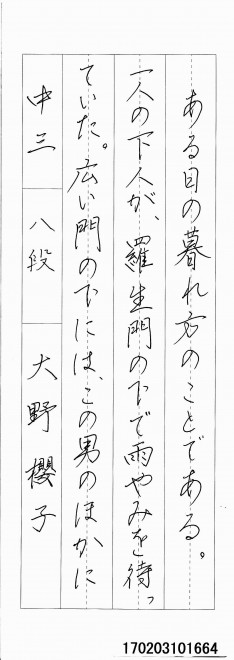 ある日の暮れ方のことである。
一人の下人が、羅生門の下で雨やみを待っ
ていた。広い門の下には、この男のほかに
中三 八段 大野櫻子
170203101664